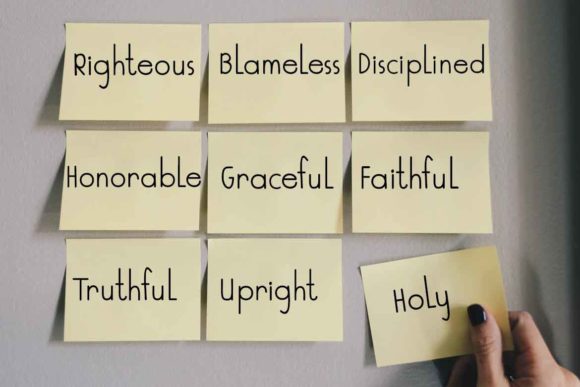 Righteous
Blameless
Disciplined
Honorable
Graceful
Faithful
Truthful
Upright
Holy